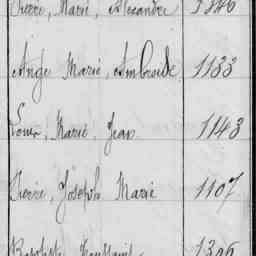 Pierre, Marie, Alexandre 1846
Ange Marie, Ambroise 1133
Louis, Marie, Jean 1143
Pierre, Joseph Marie 1107
Baptiste Toussaint 1306